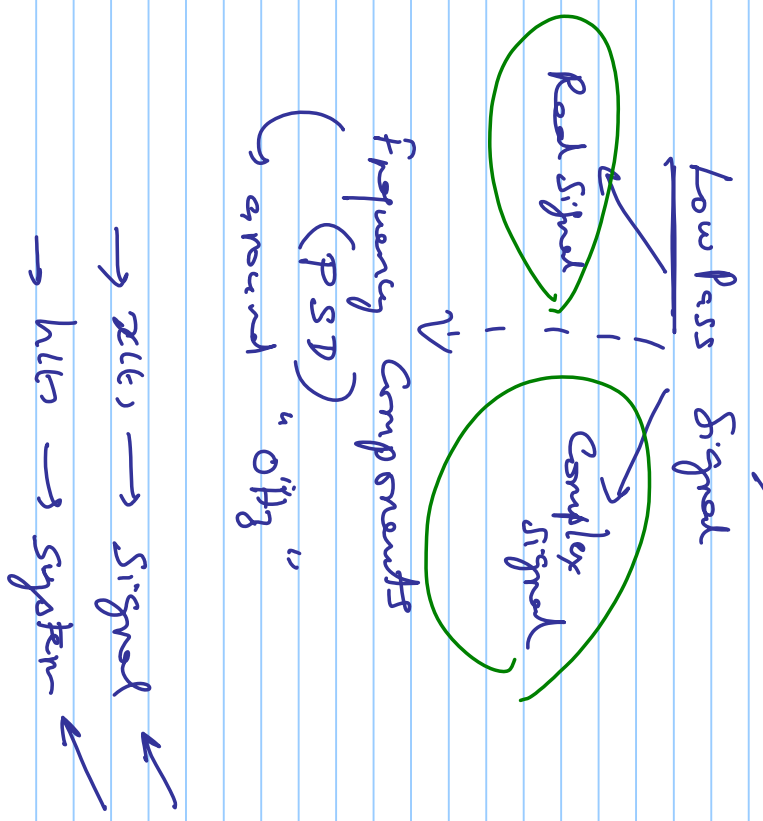 Low pass Signal
Real Signal
Complex
Signal
Frequency Components
(PSD)
around "0Hz"
→ x(t) → Signal
→ h(t) → System